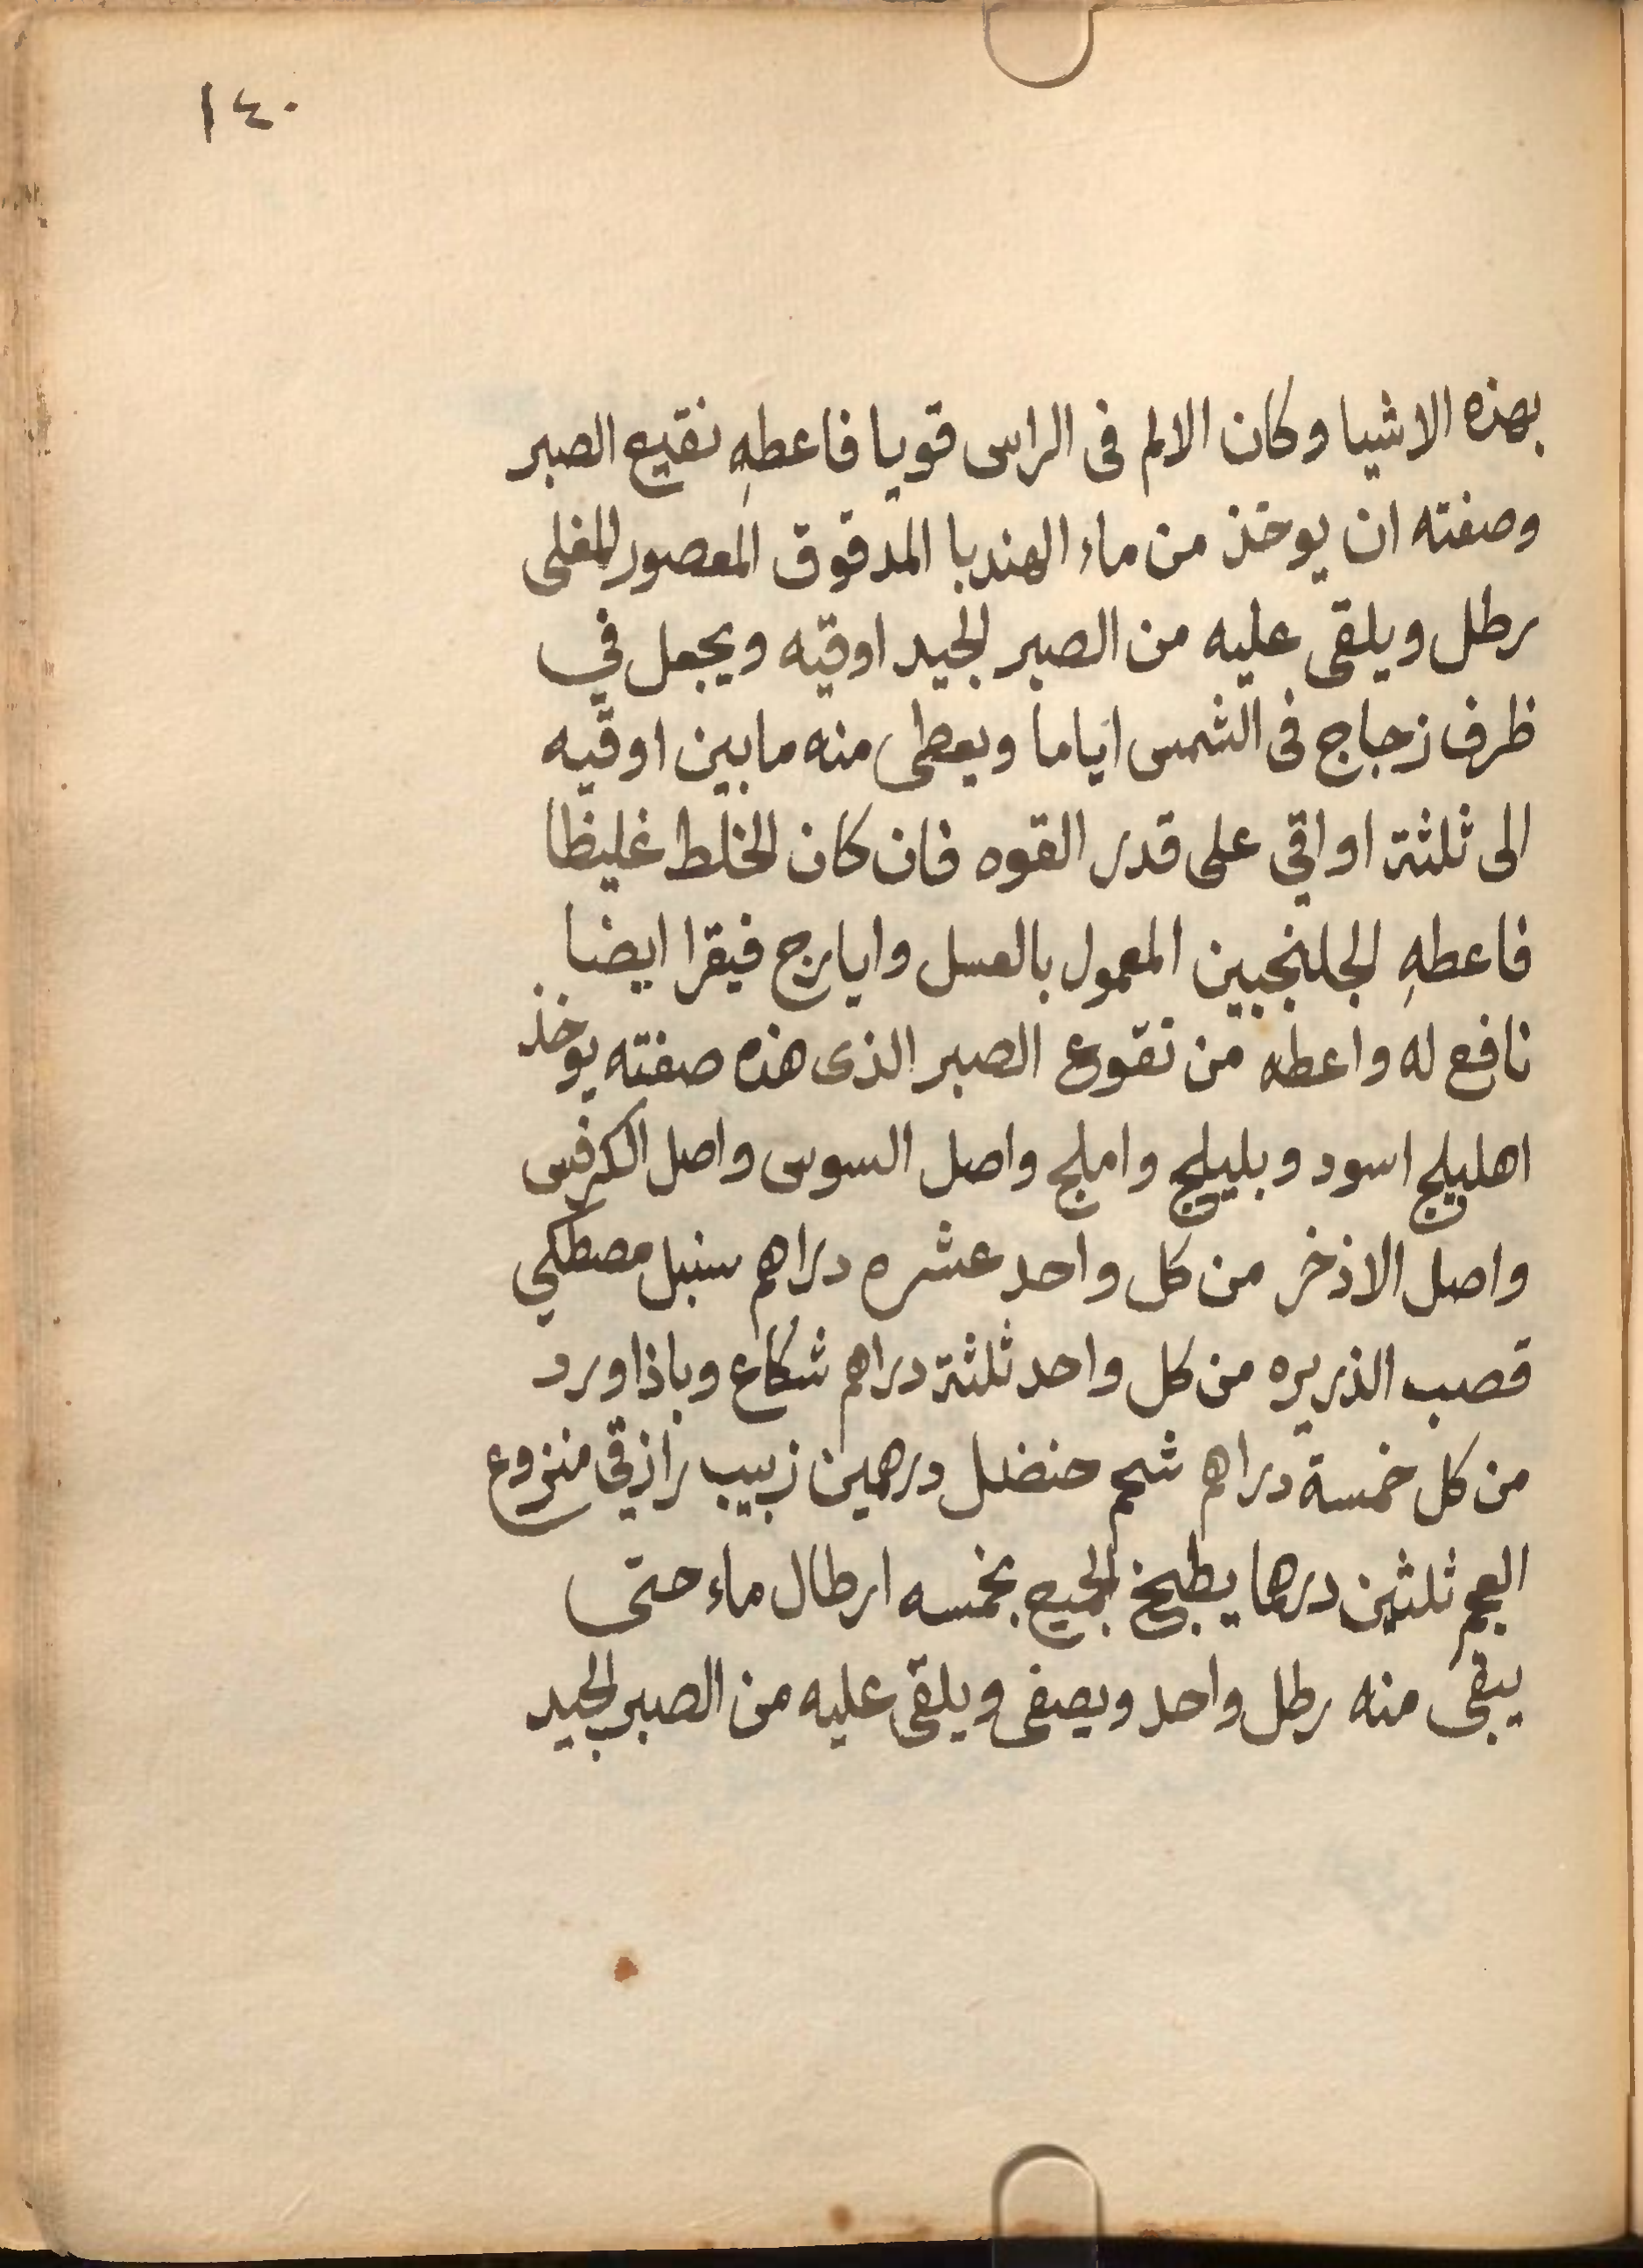 ١٤٠
بهذه الاشيا وكان الالم فى الراس قويا فاعطهِ نقيع الصبر
وصفته ان يوخذ من ماء الهندبا المدقوق المعصور المغلى
رطل ويلقى عليه من الصبر الجيد اوقيه ويجعل في
ظرف زجاج فى الشمس اياما ويعطى منه ما بين اوقيه
الى ثلثة اواقي على قدر القوه فان كان الخلط غليظا
فاعطهِ الجلنجبين المعمول بالعسل وايارج فيقرا ايضا
نافع له واعطه من نقوع الصبر الذى هذه صفته يوخذ
اهليلج اسود وبليلج واملج واصل السوس واصل الكرفس
واصل الاذخر من كل واحد عشره دراهم سنبل مصطكي
قصب الذريره من كل واحد ثلثة دراهم شكاع وباذاورد
من كل خمسة دراهم شحم حنضل درهمين زبيب رازقي منزوع
العجم ثلثين درهما يطبخ الجميع بخمسه ارطال ماء حتى
يبقى منه رطل واحد ويصفى ويلقى عليه من الصبر الجيد